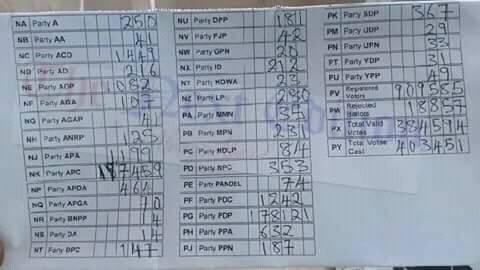 NA Party A 250
NB Party AA 41
NC Party ACD 1449
ND Party AD 216
NE Party ADP 1082
NF Party AGA
NG Party AGAP 41
NH Party ANRP 125
NJ Party APA 1199
NK Party APC
NP Party APDA 464
NQ Party APGA 70
NR Party BNPP 14
NS Party DA 14
NT Party DPC 147
NU Party DPP 1811
NV Party FJP 42
NW Party GPN 20
NX Party ID 212
NY Party KOWA 23
NZ Party LP
PA Party MMN 35
PB Party MPN 231
PC Party NDLP 84
PD Party NPC 353
PE Party PANDEL 74
PF Party PDC 1242
PG Party PDP 178121
PH Party PPA 632
PJ Party PPN 187
PK Party SDP 367
PM Party UDP 29
PN Party UPN 33
PT Party YDP 31
PU Party YPP 49
PV Registered Voters 909585
PW Rejected Ballots 18857
PX Total Valid Votes 384594
PY Total Votes Cast 403451